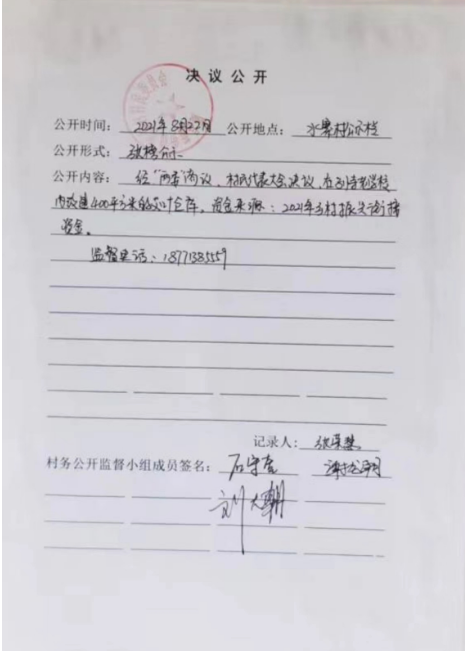 决议公开
公开时间： 2021年8月27日 公开地点： 水寨村公示栏
公开形式： 张榜
公开内容： 经"两委"商议、村民代表大会决议，在
内改建400平方米的 仓库，资金来源：2021年乡村振兴衔接
资金。
监督电话：18771385559
记录人：
村务公开监督小组成员签名： 石守奎
刘大朝